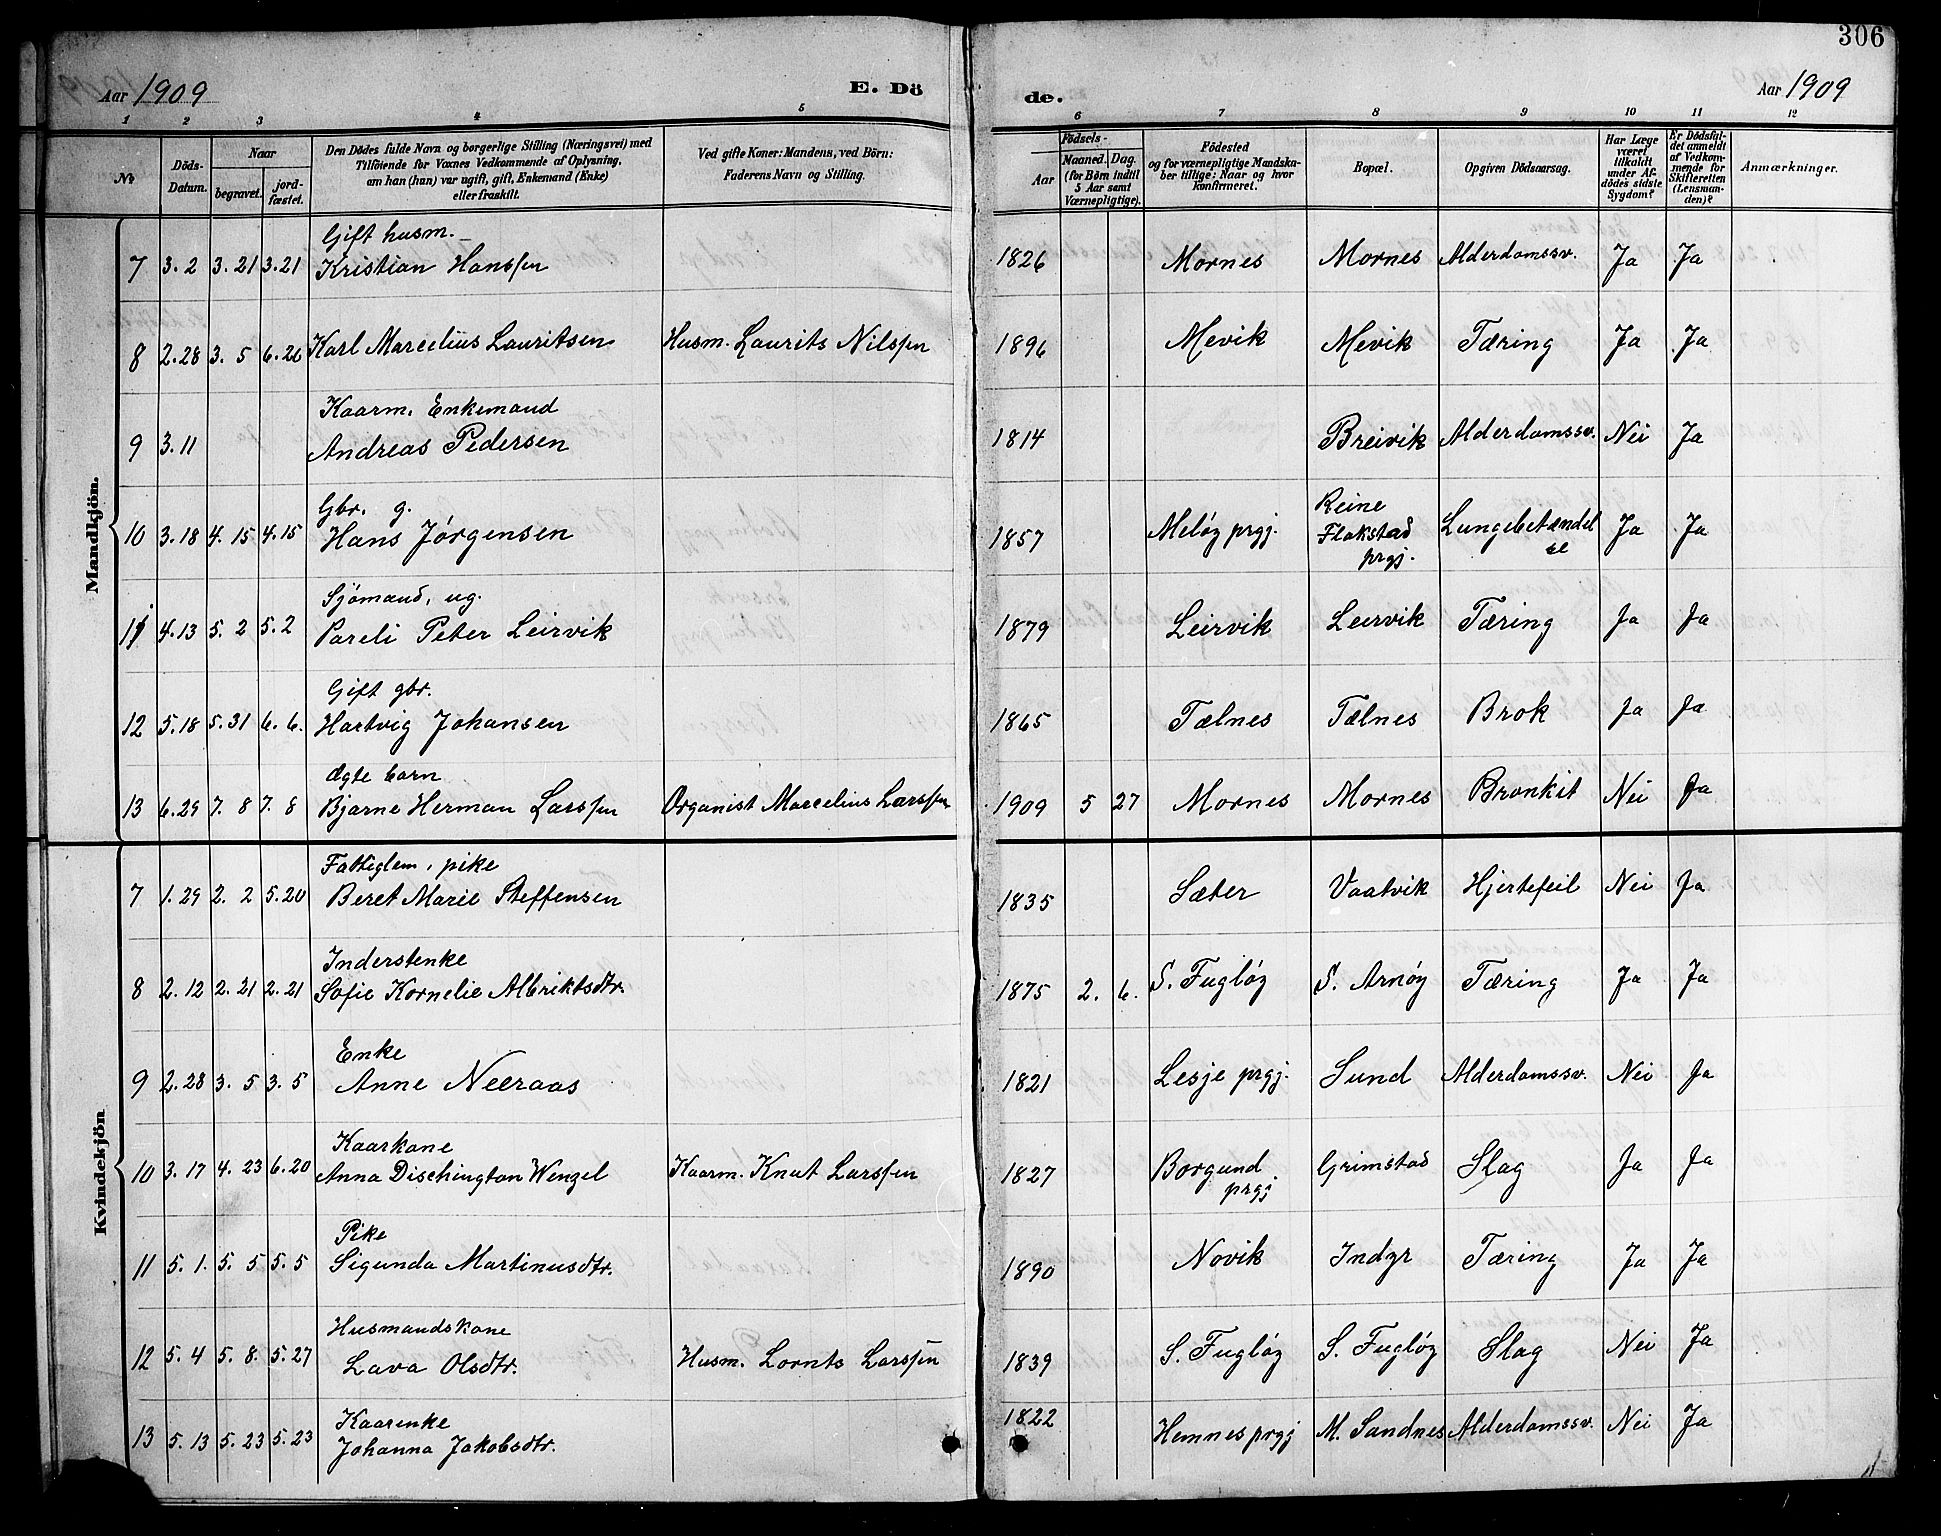 306
Aar 1909 E. Dö
de. Aar 1909
1 2 3 4 5 6 7 8 9 10 11 12
No
Döds-Datum.
Naar
begravet. jord-fæstet.
Den Dödes fulde Navn og borgerlige Stilling (Næringsvei) med
Tilföiende for Voxnes Vedkommende af Oplysning,
om han (hun) var ugift, gift, Enkemand (Enke)
eller fraskilt.
Ved gifte Koner: Mandens, ved Börn:
Faderens Navn og Stilling.
Födsels-
Aar
Maaned. Dag.
(for Börn indtil
5 Aar samt
Værnepligtige).
Födested
og for værnepligtige Mandska-
ber tillige: Naar og hvor
konfirmeret.
Bopæl.
Opgiven Dödsaarsag.
Har Læge
været
tilkaldt
under Af-
dödes sidste
Sygdom?
Er Dödsfal-
det anmeldt
af Vedkom-
mende for
Skifteretten
(Lensman-
den)?
Anmærkninger.
Mandkjön.
Gift husm.
7 3.2 3.21 3.21 Kristian Hanssen 1826 Mornes Mornes Alderdomssv. Ja Ja
8 2.28 3. 5 6.20 Karl Marcelius Lauritsen Husm. Laurits Nilssen 1896 Mevik Mevik Tæring Ja Ja
Kaarm. Enkemand
9 3.11 Andreas Pedersen 1814 Breivik Alderdomssv. Nei Ja
Gbr. g.
10 3.18 4.15 4.15 Hans Jørgensen 1857 Meløy prgj. Reine Flakstad prgj. Lungebetændelse Ja Ja
Sjömand, ug.
11 4.13 5.2 5.2 Pareli Peter Leirvik 1879 Leirvik Leirvik Tæring Ja Ja
Gift gbr.
12 5.18 5.31 6.6. Hartvig Johansen 1865 Tælnes Tælnes Brok Ja Ja
Ægte barn
13 6.29 7.8 7.8 Bjarne Herman Larssen Organist Marcelius Larssen 1909 5 27 Mornes Mornes Bronkit Nei Ja
Kvindekjön
Fattiglem, pike
7 1.29 2.2 5.20 Beret Marie Steffensen 1835 Sæter Vaatvik Hjertefeil Nei Ja
Inderstenke
8 2.12 2.21 2.21 Sofie Kornelie Albriktsdtr. 1875 2. 6. S. Fugløy S. Arnøy Tæring Ja Ja
Enke
9 2.28 3.5 3.5 Anne Neeraas 1821 Lesje prgj. Sund Alderdomssv. Nei Ja
Kaarkone
10 3.17 4.23 6.20 Anna Dischington Wenzel Kaarm. Knut Larssen 1827 Borgund prgj Grimstad Slag Ja Ja
Pike
11 5.1. 5.5 5.5 Sigunda Martinusdtr. 1890 Novik Indyr Tæring Ja Ja
Husmandskone
12 5.4 5.8. 5.27 Lava Olsdtr. Husm. Lornts Larssen 1839 S. Fugløy S. Fugløy Slag Nei Ja
Kaarenke
13 5.13 5.23 5.23 Johanna Jakobsdtr. 1822 Hemnes prgj M. Sandnes Alderdomssv. Nei Ja